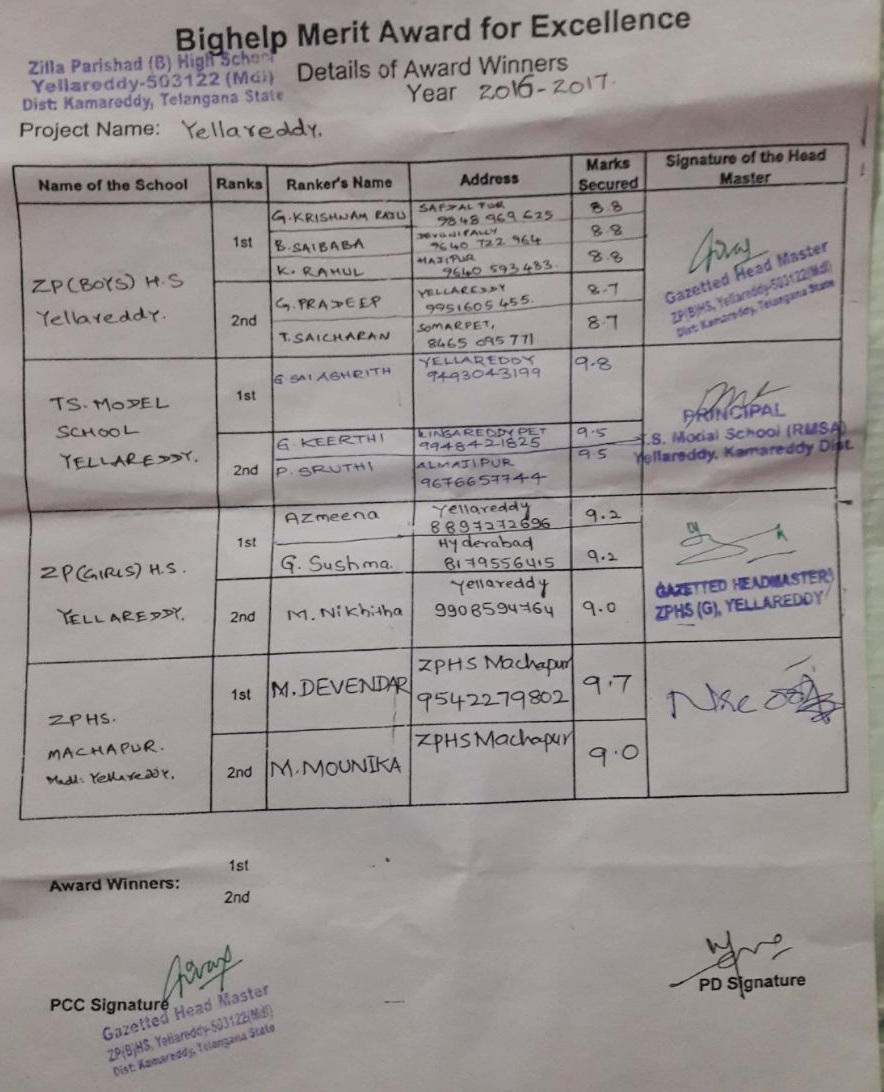 Bighelp Merit Award for Excellence
Zilla Parishad (B) High School
Yellareddy-503122 (Mdl)
Dist: Kamareddy, Telangana State
Details of Award Winners
Year 2016-2017.
Project Name: Yellareddy.
Name of the School Ranks Ranker's Name Address Marks Secured Signature of the Head Master
ZP(BOYS) H.S
Yellareddy.
1st
G.KRISHNAM RAJU
9848 969 625
8.8
B.SAIBABA
9640 722 964
8.8
K. RAHUL
MAJIPUR
9640 593 483.
8.8
2nd
G.PRADEEP
YELLAREDDY
9951605 455.
8.7
T.SAICHARAN
SOMARPET,
8465 095 771
8.7
Gazetted Head Master
ZP(B)HS, Yellareddy-503122(Mdl)
Dist: Kamareddy, Telangana State
TS. MODEL
SCHOOL
YELLAREDDY.
1st
G SAI ASHRITH
YELLAREDDY
9493043199
9.8
2nd
G. KEERTHI
LINGAREDDYPET
9948421825
9.5
P. SRUTHI
ALMAJIPUR
9676657744
9.5
PRINCIPAL
T.S. Modal School (RMSA)
Yellareddy. Kamareddy Dist.
ZP(GIRLS) H.S.
YELLAREDDY.
1st
Azmeena
Yellareddy
8897272696
9.2
G. Sushma.
Hyderabad
8179556415
9.2
2nd
M. Nikhitha
Yellareddy
9908594764
9.0
GAZETTED HEADMASTER
ZPHS (G), YELLAREDDY
ZPHS.
MACHAPUR.
Mndl: Yellareddy.
1st
M.DEVENDAR
ZPHS Machapur
9542279802
9.7
2nd
M.MOUNIKA
ZPHS Machapur
9.0
Award Winners:
1st
2nd
PCC Signature
Gazetted Head Master
ZP(B)HS, Yellareddy-503122(Mdl)
Dist: Kamareddy, Telangana State
PD Signature